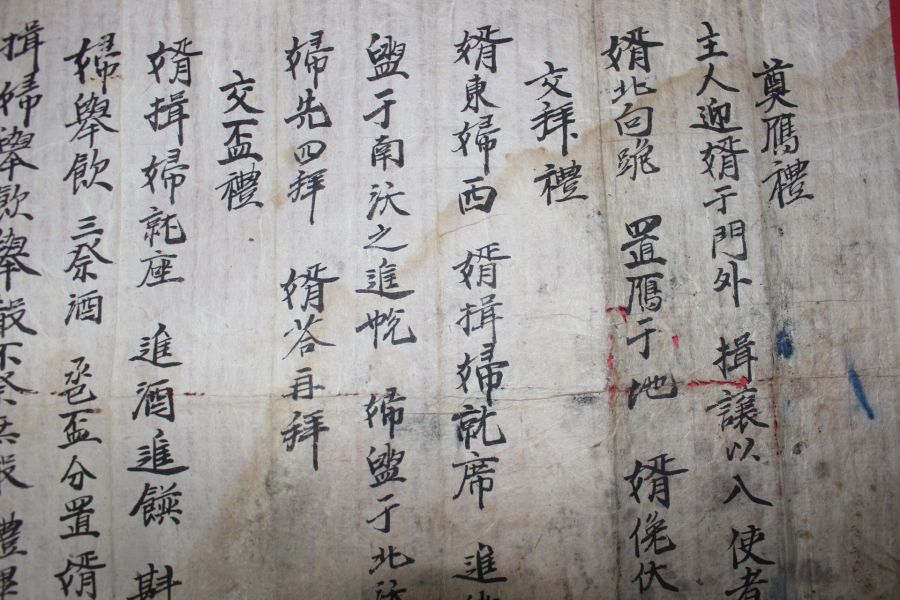 奠鴈禮
主人迎婿于門外 揖讓以入 使者
婿北向跪 置鴈于地 婿俛伏
交拜禮
婿東婦西 婿揖婦就席 進
盥于南沃之進帨 婦盥于北沃
婦先四拜 婿答再拜
交盃禮
婿揖婦就座 進酒進饌 斟
婦舉飮 三祭酒 巹盃分置婿
揖婦舉飮舉殽不祭無殽 禮畢